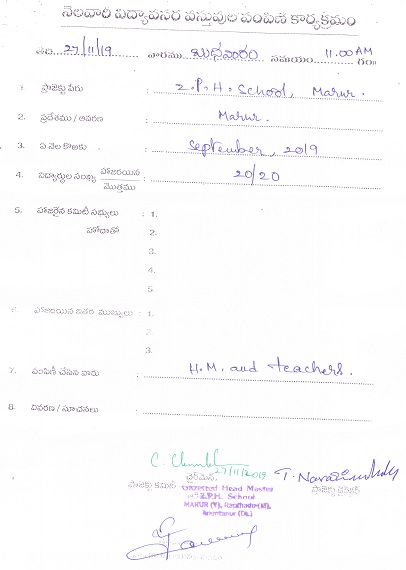 నెలవారీ విద్యావసర వస్తువుల పంపిణీ కార్యక్రమం
తేది 27/11/19 వారము బుధవారం సమయం 11.00 AM గం॥
1. ప్రాజెక్టు పేరు : Z.P.H. School, Marur.
2. ప్రదేశము / ఆవరణ : Marur.
3. ఏ నెల కొఱకు : September, 2019
4. విద్యార్థుల సంఖ్య హాజరయిన / మొత్తము : 20/20
5. హాజరైన కమిటీ సభ్యులు : 1.
హోదాతో 2.
3.
4.
5.
6. హాజరయిన ఇతర ముఖ్యులు : 1.
2.
3.
7. పంపిణీ చేసిన వారు : H.M. and teachers.
8. వివరణ / సూచనలు :
27/11/2019
ప్రాజెక్టు కమిటీ చైర్మన్ ప్రాజెక్టు డైరెక్టర్
Gazetted Head Master
Z.P.H. School
MARUR (V), Rapthadu (M),
Anantapur (Dt.)